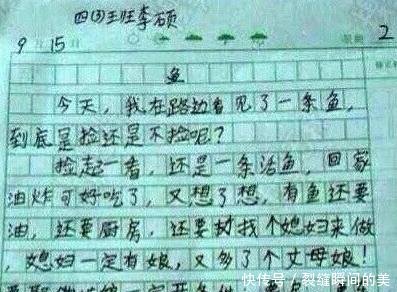 四(3)班李硕
9月15日 星期2
鱼
今天，我在路边看见了一条鱼，
到底是捡还是不捡呢？
捡起一看，还是一条活鱼，回家
油炸可好吃了，又想了想，有鱼还要
油，还要厨房，还要找个媳妇来做
，媳妇一定有娘，又多了个丈母娘！
快传号／裂缝瞬间的美